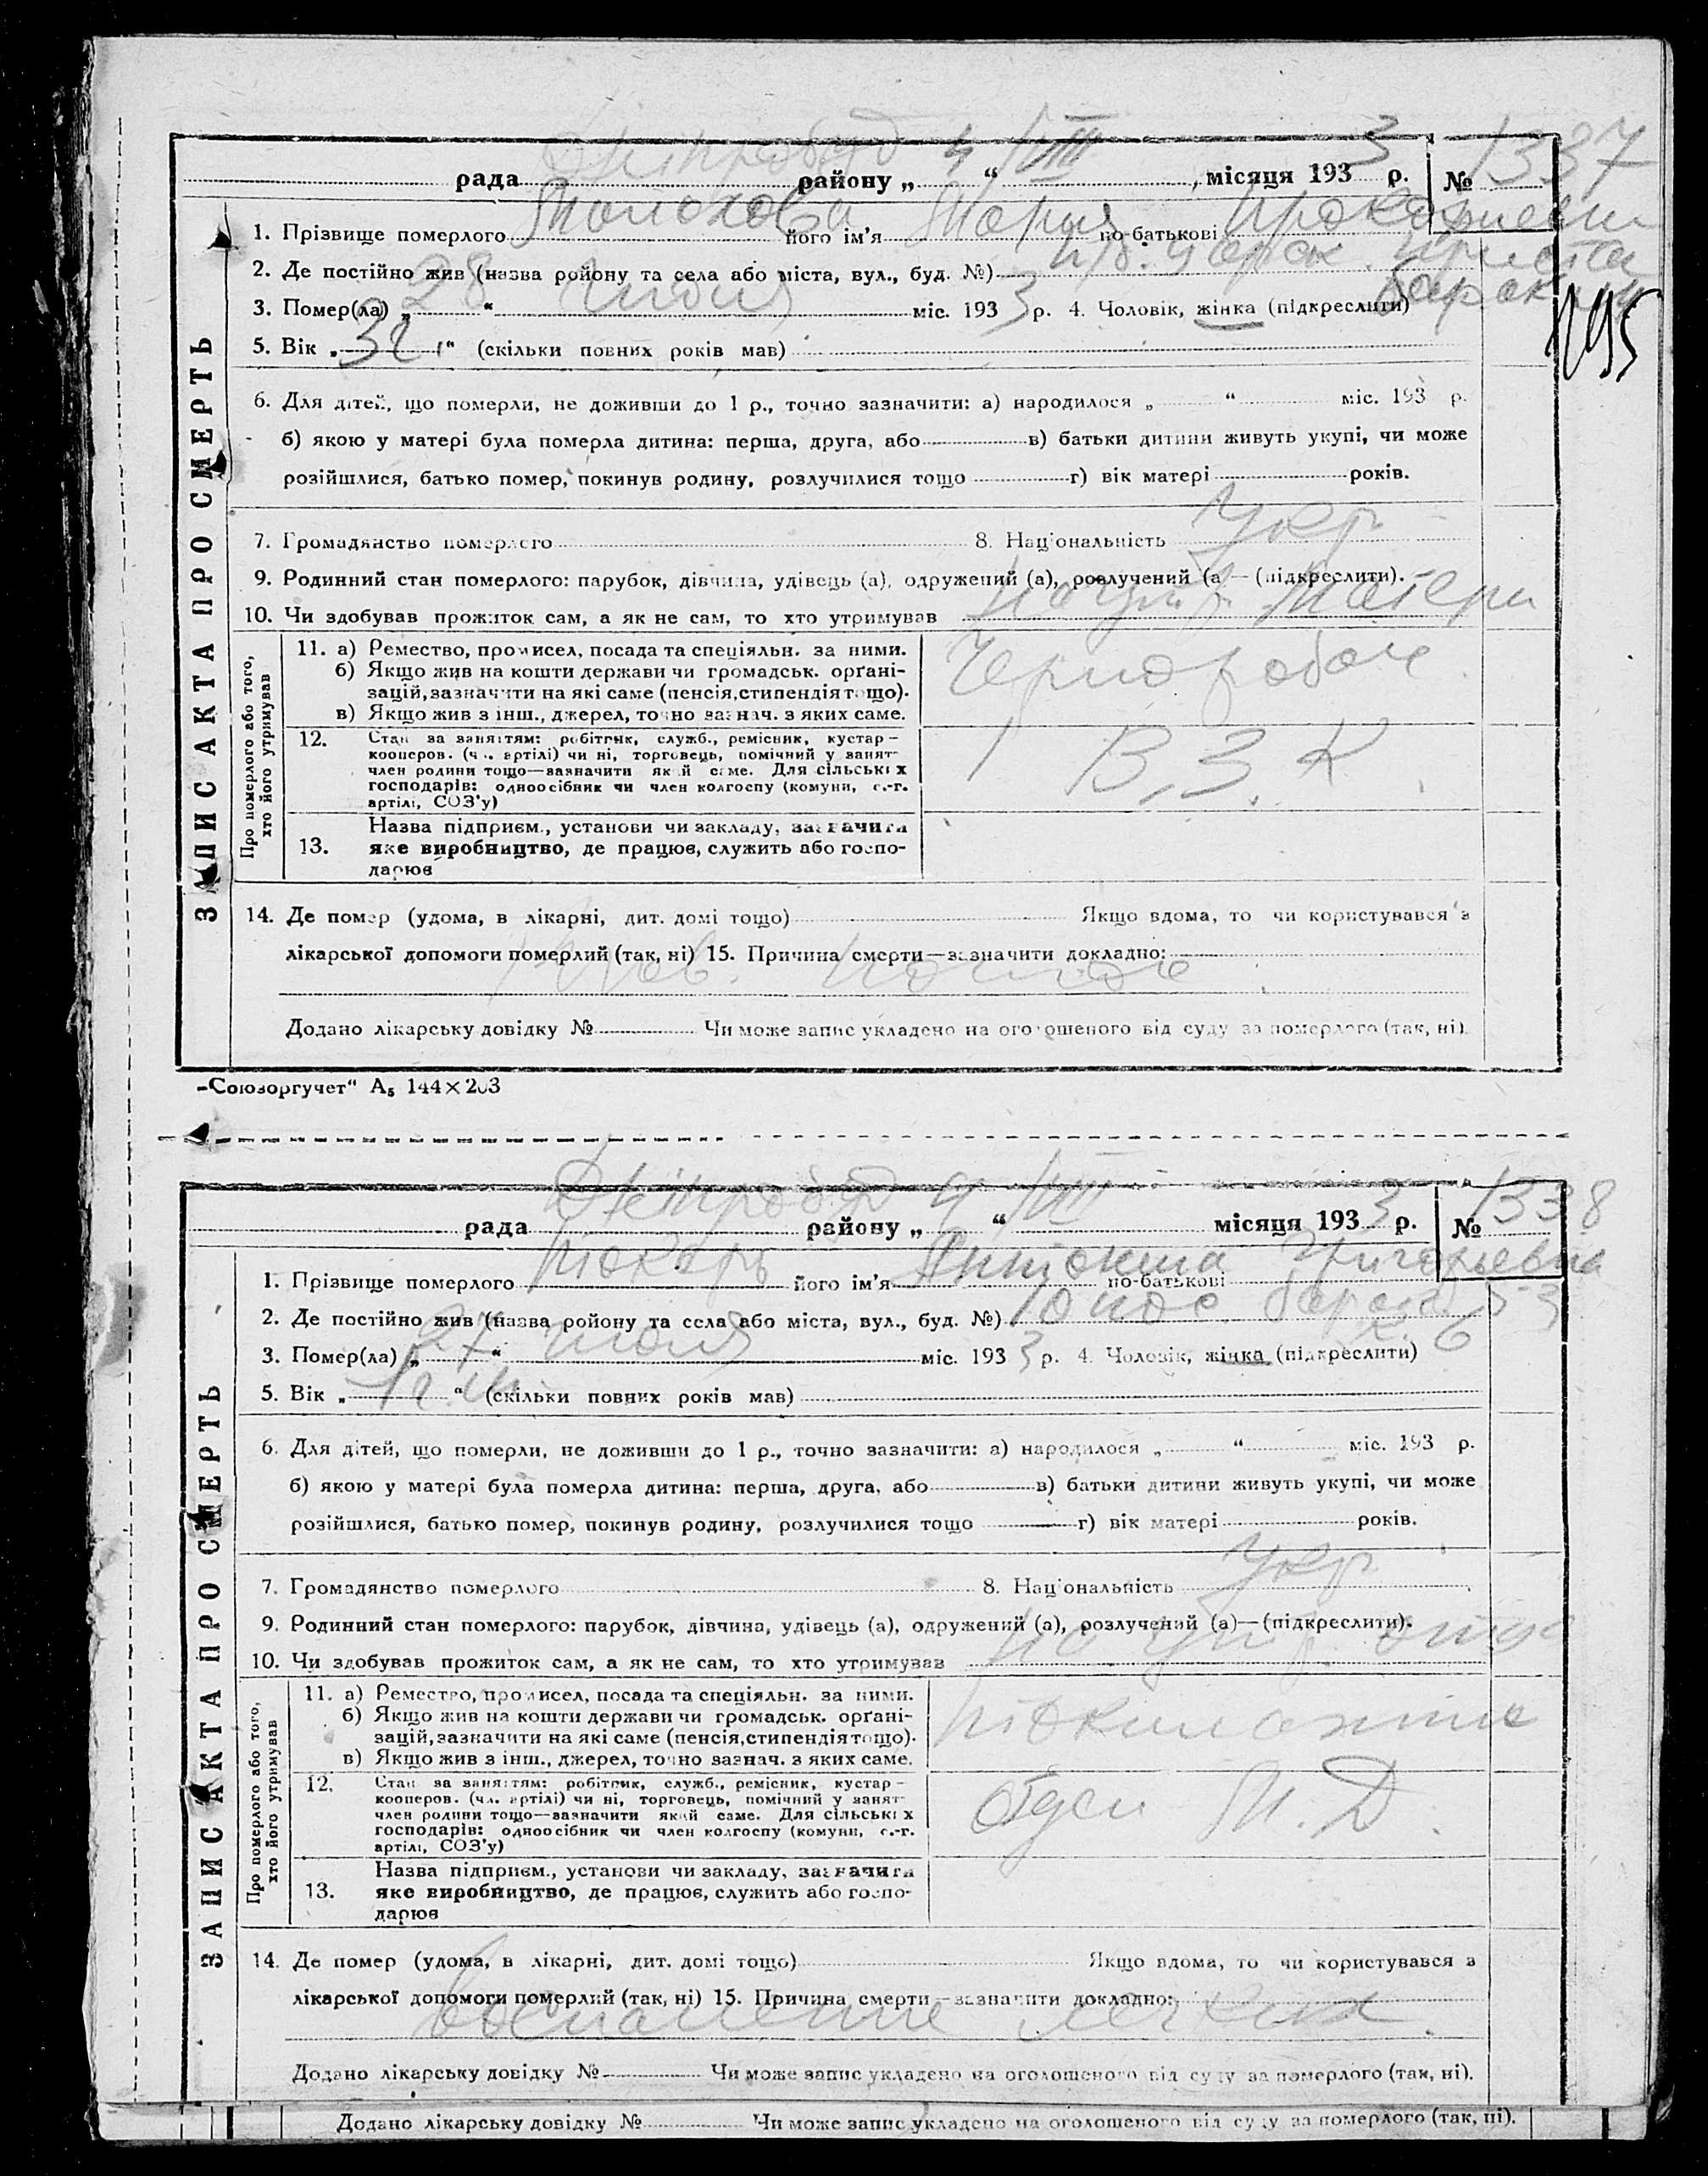 Дніпробуд 4 VIII 3 1337
рада району „ “ , місяця 193 р. №
1. Прізвище померлого його ім’я Мария по-батькові
2. Де постійно жив (назва ройону та села або міста, вул., буд. №)
3. Помер(ла) „ 28 “ июля міс. 193 3 р. 4. Чоловік, жінка (підкреслити)
1195
5. Вік „ “ (скільки повних років мав)
6. Для дітей, що померли, не доживши до 1 р., точно зазначити: а) народилося „ “ міс. 193 р.
б) якою у матері була померла дитина: перша, друга, або в) батьки дитини живуть укупі, чи може
розійшлися, батько помер, покинув родину, розлучилися тощо г) вік матері років.
7. Громадянство померлого 8. Національність Укр
9. Родинний стан померлого: парубок, дівчина, удівець (а), одружений (а), розлучений (а) — (підкреслити).
10. Чи здобував прожиток сам, а як не сам, то хто утримував Матери
Про померлого або того, хто його утримував
11. а) Ремество, промисел, посада та спеціяльн. за ними.
б) Якщо жив на кошти держави чи громадськ. орґані-
зацій, зазначити на які саме (пенсія, стипендія тощо).
в) Якщо жив з інш., джерел, точно зазнач. з яких саме.
Чернороб
12. Стан за заняттям: робітник, служб., ремісник, кустар—
кооперов. (чл. артілі) чи ні, торговець, помічний у занят
член родини тощо—зазначити який саме. Для сільських
господарів: одноосібник чи член колгоспу (комуни, с.-г.
артілі, СОЗ’у)
В. З. К
13. Назва підприєм., установи чи закладу, зазначити
яке виробництво, де працює, служить або госпо-
дарює
14. Де помер (удома, в лікарні, дит. домі тощо) Якщо вдома, то чи користувався з
лікарської допомоги померлий (так, ні) 15. Причина смерти—зазначити докладно:
Додано лікарську довідку № Чи може запис укладено на оголошеного від суду за померлого (так, ні).
ЗАПИС АКТА ПРО СМЕРТЬ
„Союзоргучет“ А5 144×203
Дніпробуд 4 VIII 3 1338
рада району „ “ місяця 193 р. №
1. Прізвище померлого його ім’я по-батькові Григорьевна
2. Де постійно жив (назва ройону та села або міста, вул., буд. №) 10 пос. барак 53
к. 6
3. Помер(ла) „ 27 “ июля міс. 193 3 р. 4. Чоловік, жінка (підкреслити)
5. Вік „ “ (скільки повних років мав)
6. Для дітей, що померли, не доживши до 1 р., точно зазначити: а) народилося „ “ міс. 193 р.
б) якою у матері була померла дитина: перша, друга, або в) батьки дитини живуть укупі, чи може
розійшлися, батько помер, покинув родину, розлучилися тощо г) вік матері років.
7. Громадянство померлого 8. Національність Укр
9. Родинний стан померлого: парубок, дівчина, удівець (а), одружений (а), розлучений (а)—(підкреслити).
10. Чи здобував прожиток сам, а як не сам, то хто утримував отца
Про померлого або того, хто його утримував
11. а) Ремество, промисел, посада та спеціяльн. за ними.
б) Якщо жив на кошти держави чи громадськ. орґані-
зацій, зазначити на які саме (пенсія, стипендія тощо).
в) Якщо жив з інш., джерел, точно зазнач. з яких саме.
12. Стан за заняттям: робітник, служб., ремісник, кустар—
кооперов. (чл. артілі) чи ні, торговець, помічний у занят
член родини тощо—зазначити який саме. Для сільських
господарів: одноосібник чи член колгоспу (комуни, с.-г.
артілі, СОЗ’у)
13. Назва підприєм., установи чи закладу, зазначити
яке виробництво, де працює, служить або госпо-
дарює
14. Де помер (удома, в лікарні, дит. домі тощо) Якщо вдома, то чи користувався з
лікарської допомоги померлий (так, ні) 15. Причина смерти—зазначити докладно:
Воспаление легких.
Додано лікарську довідку № Чи може запис укладено на оголошеного від суду за померлого (так, ні).
ЗАПИС АКТА ПРО СМЕРТЬ
Додано лікарську довідку № Чи може запис укладено на оголошеного від суду за померлого (так, ні).